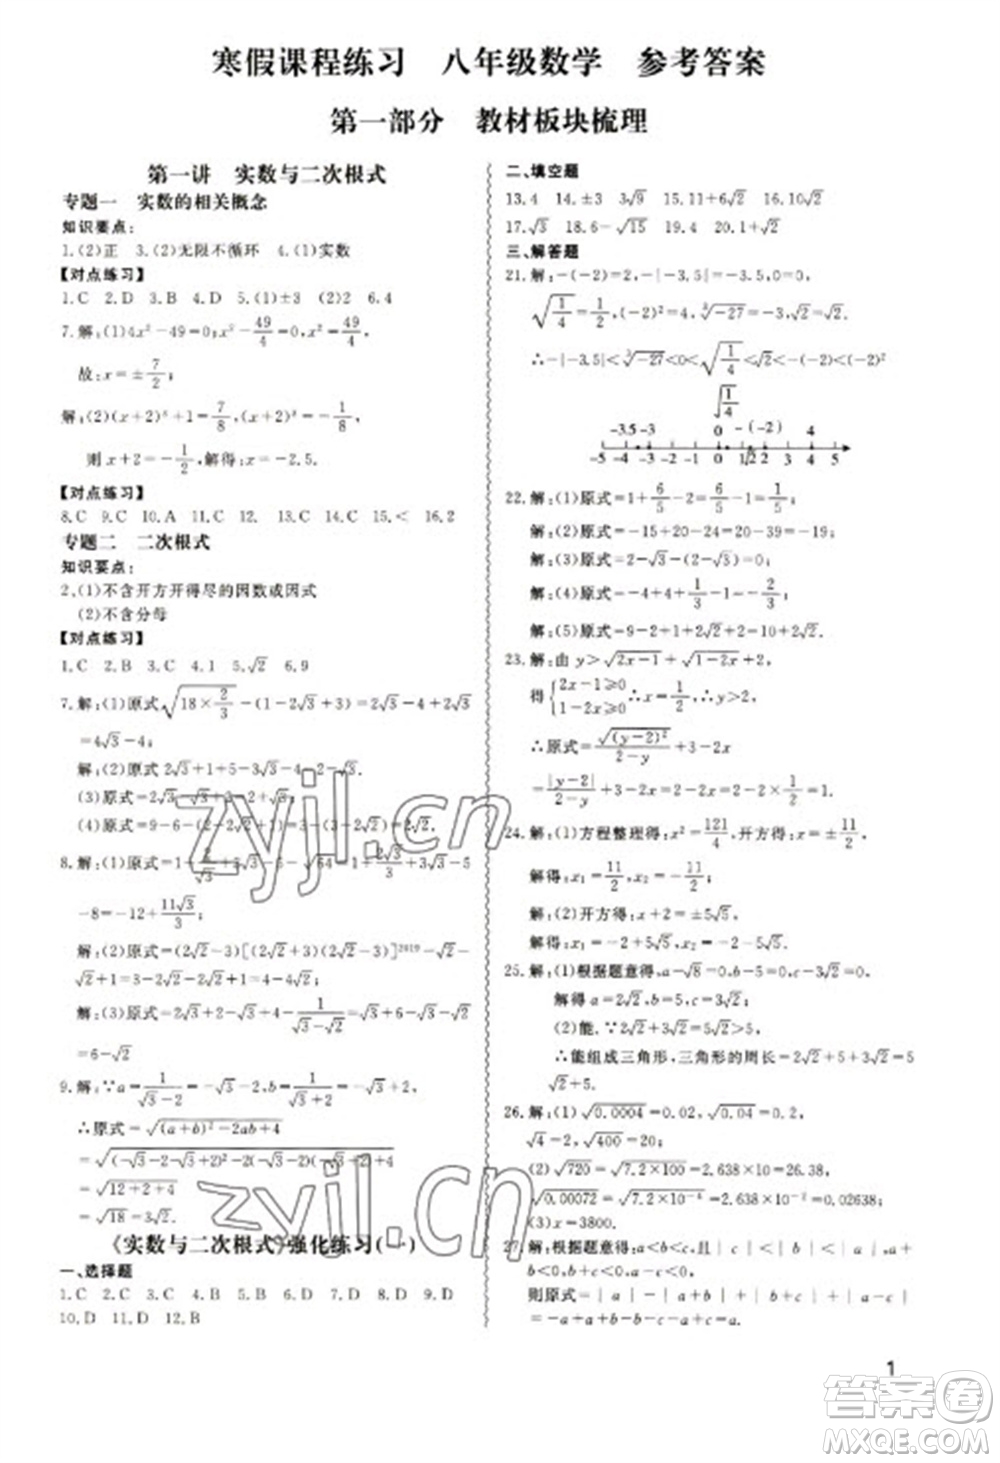 寒假课程练习 八年级数学 参考答案
第一部分 教材板块梳理
第一讲 实数与二次根式
专题一 实数的相关概念
知识要点:
1.(2)正 3.(2)无限不循环 4.(1)实数
【对点练习】
1.C 2.D 3.B 4.D 5.(1)±3 (2)2 6.4
7.解:(1)4x²-49=0;x²-49/4=0,x²=49/4,
故:x=±7/2;
解:(2)(x+2)³+1=7/8,(x+2)³=-1/8,
则 x+2=-1/2,解得:x=-2.5.
【对点练习】
8.C 9.C 10.A 11.C 12. 13.C 14.C 15.< 16.2
专题二 二次根式
知识要点:
2.(1)不含开方开得尽的因数或因式
(2)不含分母
【对点练习】
1.C 2.B 3.C 4.1 5.√2 6.9
7.解:(1)原式√(18×2/3)-(1-2√3+3)=2√3-4+2√3
=4√3-4;
解:(2)原式2√3+1+5=2√3+6.
(3)原式=2√3-√3+√3=2√3.
(4)原式=9-6-(2√2-1)=3-(2√2)=2√2.
8.解:(1)原式=1+2/√3-3-√64-1+2√3/3+3√3-5
-8=-12+11√3/3;
解:(2)原式=(2√2-3)[(2√2+3)(2√2-3)]²⁰¹⁹-√2
-2=2√2-3-√2-2√2+1=√2-1
解:(3)原式=2√3+2-√2+1/(√3+√2)=√3+6-√3-√2
=6-√2
9.解:∵a=1/(√3-2)=-√3-2,b=1/(√3+2)=2-√3
∴原式=√((a+b)²-2ab+4)
=√((-√3-2-√3+2)²-2(-√3-2)(2-√3)+4)
=√(12+2+4)
=√18=3√2
《实数与二次根式》强化练习(一)
一、选择题
1.C 2.C 3.C 4.D 5.B 6.D 7.C 8.D 9.D
10.D 11.D 12.B
二、填空题
13.4 14.±3 3√9 15.11+√2 16.10√2
17.√5 18.6-√15 19.4 20.1-√2
三、解答题
21.解:-(-2)=2,-|-3.5|=-3.5,0=0,
√(1/4)=1/2,(-2)²=4,³√-27=-3,√2=√2.
∴-|-3.5|<³√-27<0<√(1/4)<√2<-(-2)<(-2)²
√(1/4)
-3.5-3 0 -(-2) 4
-5 -4 -3 -2 -1 0 1√2 2 3 4 5
22.解:(1)原式=1+6/5-2=1/5-1=1/5;
解:(2)原式=-15+20-24=20-39=-19;
解:(3)原式=2-√3-(2-√3)=0;
解:(4)原式=-4+4+1/3-1=-2/3;
解:(5)原式=9-2+1+2√2+2=10+2√2.
23.解:由 y>√(2x-1)+√(1-2x)+2,
得{2x-1≥0 1-2x≥0 ∴x=1/2,∴y>2,
∴原式=√((y-2)²)/(2-y)+3-2
=|y-2|/(2-y)+3-2=-1+3-2=
24.解:(1)方程整理得:x²=121/4,开方得:x=±11/2,
解得:x₁=11/2,x₂=-11/2;
解:(2)开方得:x-√5=±5√5,
解得:x₁=6√5,x₂=-4√5.
25.解:(1)根据题意得,a-√8=0,b-5=0,c-3√2=0,
解得 a=2√2,b=5,c=3√2;
(2)能.∵2√2+3√2=5√2>5,
∴能组成三角形,三角形的周长=2√2+5+3√2=5
√2+5.
26.解:(1)√0.0004=0.02,√0.04=0.2,
√4=2,√400=20;
(2)√720=√(7.2×100)=2.683×10=26.83,
√0.00072=√(7.2×10⁻⁴)=2.638×10⁻²=0.02638;
(3)x=3800.
27.解:根据题意得:a<b<c,且|c|<|b|<|a|,a+
b<0,b-c<0,
则原式=|a|-|a+b|+|c-a|+|b-c|
=-a+a+b+c-a-b+c=2c-a.
1
zyjl.cn
zyjl.cn
答案圈
MXQE.COM